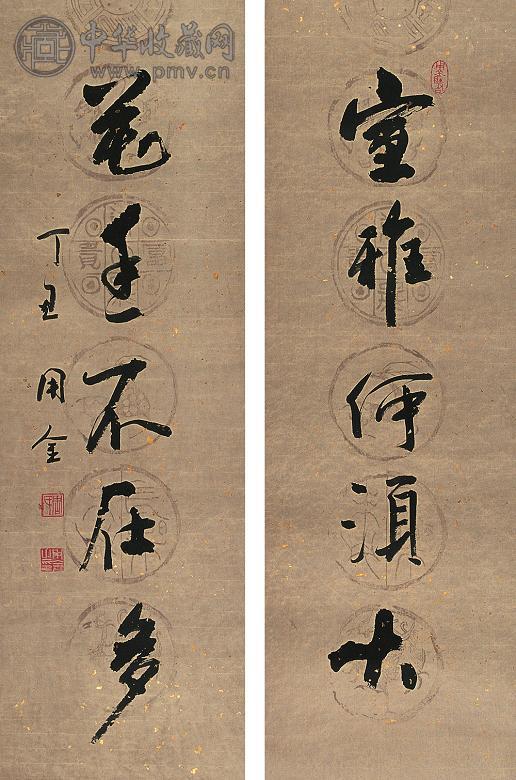 室雅何須大
花香不在多
丁丑 用金
中华收藏网
www.pmv.cn